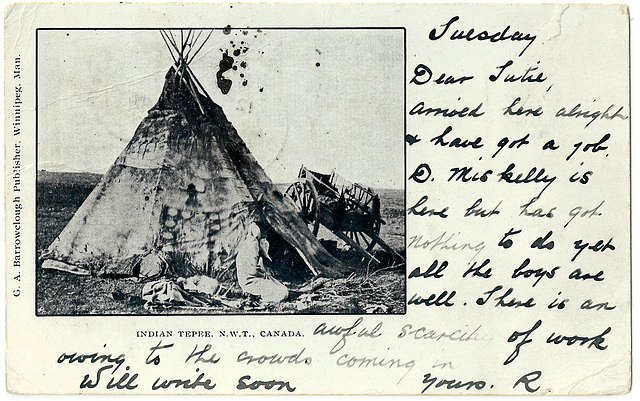 G. A. Barrowclough Publisher, Winnipeg, Man.
Tuesday
Dear Tutie,
arrived here alright
& have got a job.
D. Miskelly is
here but has got
nothing to do yet
all the boys are
well. There is an
INDIAN TEPEE, N.W.T., CANADA.
awful scarcity of work
owing to the crowds coming in
Will write soon
yours. R.